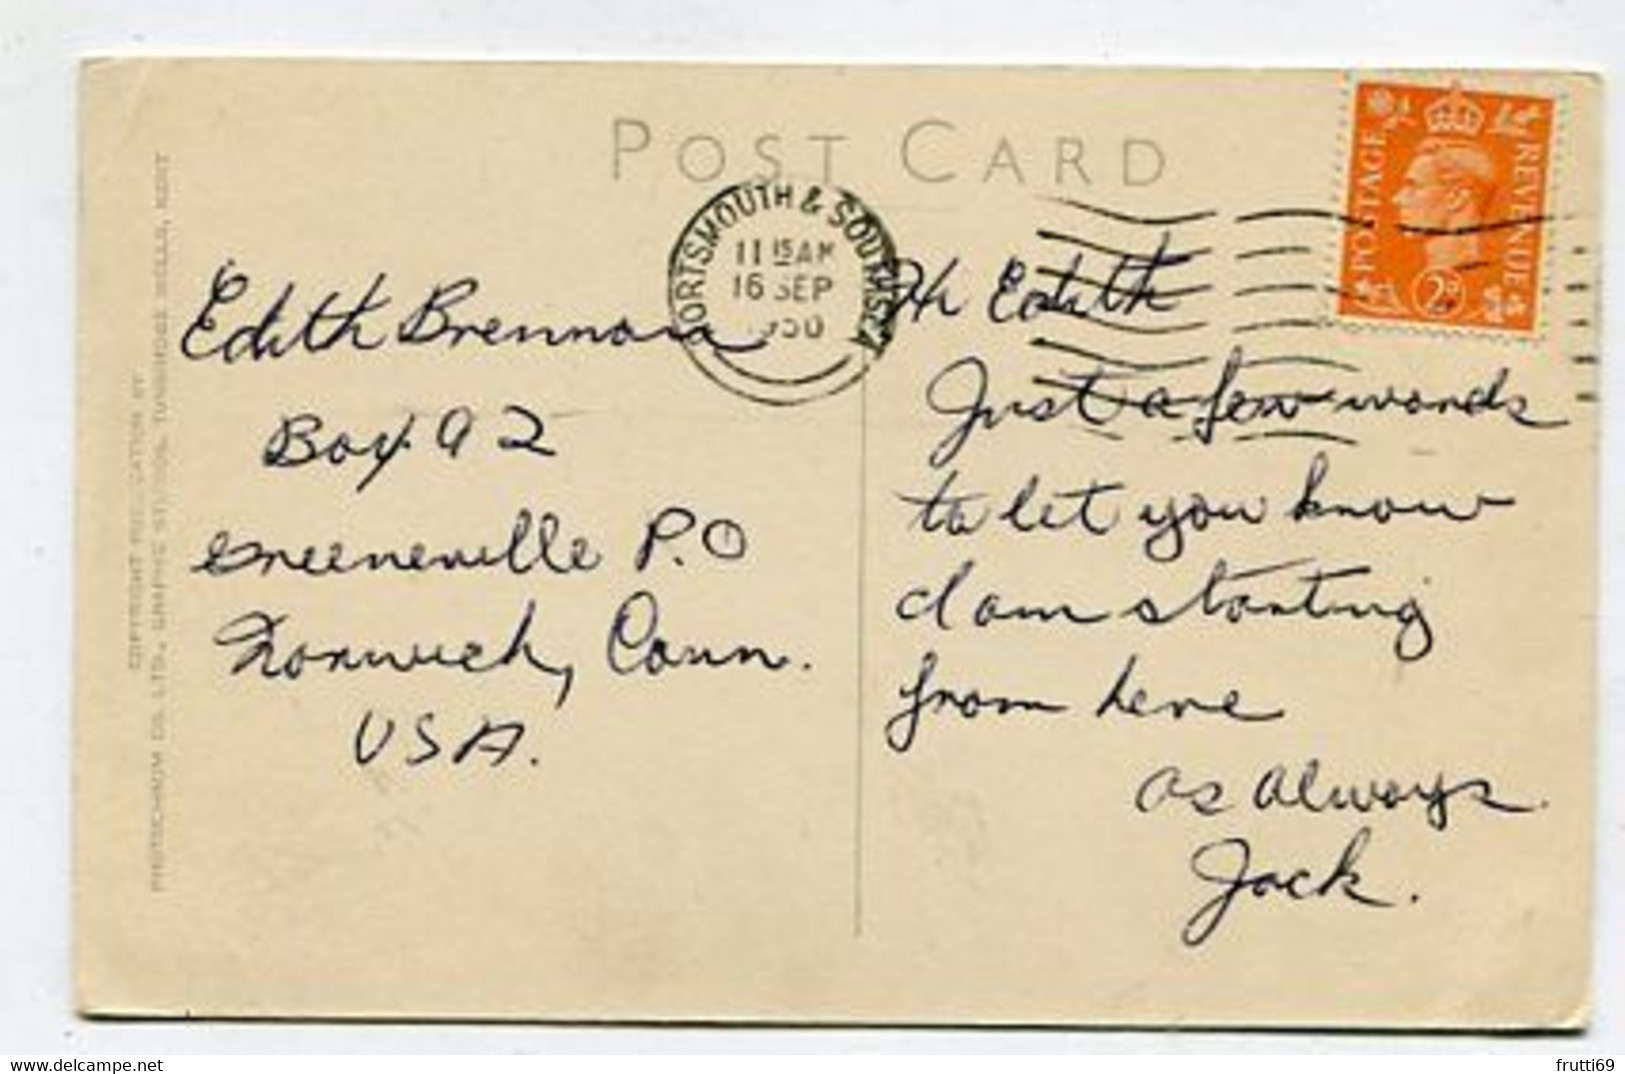 POST CARD
PORTSMOUTH & SOUTHSEA
11 15 AM
16 SEP
1950
POSTAGE REVENUE
2D
Edith Brennan
Box 92
Greeneville P.O
Norwich, Conn.
USA.
Hi Edith
Just a few words
to let you know
I am starting
from here
as always
Jack.
COPYRIGHT PUBLICATION BY
PHOTOCHROM CO. LTD., GRAPHIC STUDIOS, TUNBRIDGE WELLS, KENT
Delcampe.net
frutti69